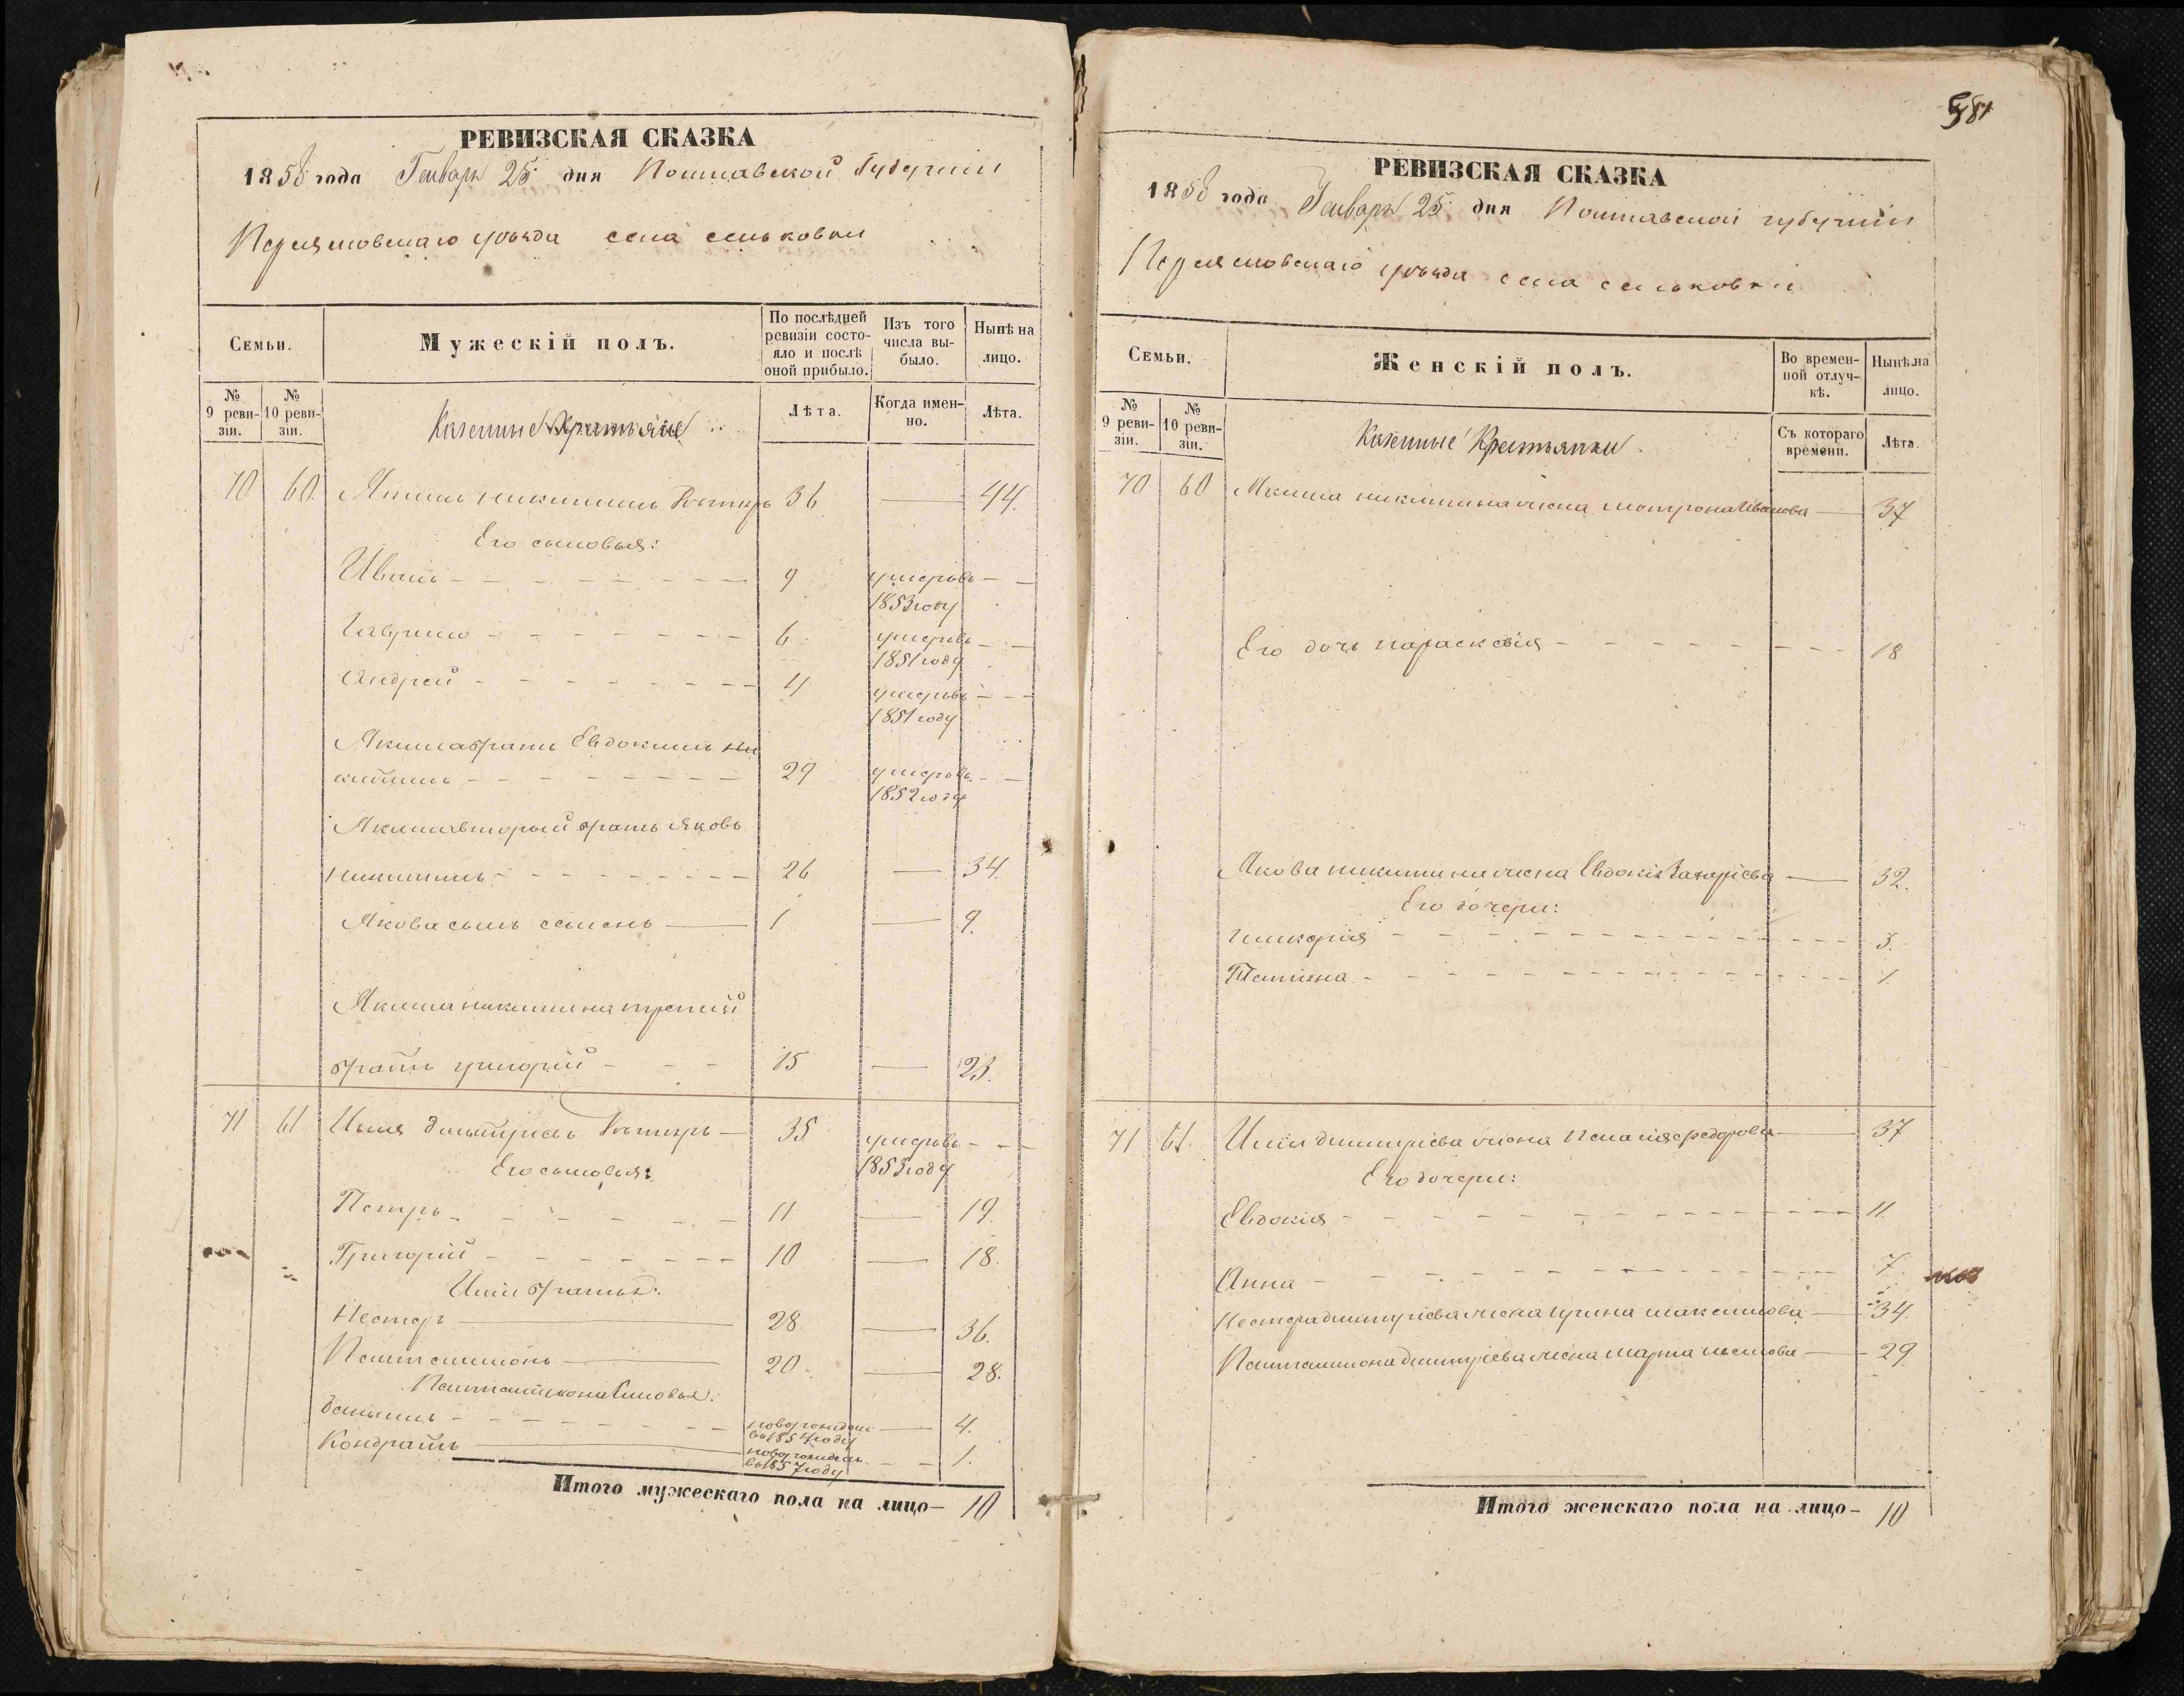 РЕВИЗСКАЯ СКАЗКА
1858 года Генваря 25 дня Полтавской Губерніи
Переяславскаго уѣзда села сеньковки
Семьи.
Мужескій полъ.
По послѣдней ревизіи состояло и послѣ оной прибыло.
Изъ того числа выбыло.
Нынѣ на лицо.
№ 9 ревизіи.
№ 10 ревизіи.
Казенные Крестьяне
Лѣта.
Когда именно.
Лѣта.
70 60. Якимъ никитинъ 36 — 44.
Его сыновья:
Иванъ 9 умеръ въ
1853 году
Гаврило 6 умеръ въ
1851 году
Андрей 4 умеръ въ
1851 году
Якима братъ Евдокимъ ни
китинъ 29 умеръ въ
1852 году
Якима вторый братъ яковъ
никитинъ 26 — 34.
Якова сынъ семенъ — 1 — 9.
Якима никитина третій
братъ григорій 15 — 23.
71 61 Илья дмытріевъ — 35 умеръ въ
1853 году
Его сыновья:
Петръ 11 — 19.
Григорій 10 — 18.
Ильи братья:
Несторъ — 28 — 36.
Пантелимонъ — 20 — 28.
Пантелимона Сыновья:
данило новорожденъ — 4.
въ 1854 году
Кондратъ — новорожденъ 1.
въ 1857 году
Итого мужескаго пола на лицо— 10
581
РЕВИЗСКАЯ СКАЗКА
1858 года Генваря 25 дня Полтавской губерніи
Переяславскаго уѣзда села сеньковки
Семьи.
Женскій полъ.
Во временной отлучкѣ.
Нынѣ на лицо.
№ 9 ревизіи.
№ 10 ревизіи.
Казенные Крестьянки
Съ котораго времени.
Лѣта.
70 60 Якима никитина жена мотрона Иванова — 37
Его дочь параскевія 18
Якова никитина жена Евдокія Захаріева — 32.
Его дочери:
гликерія 3.
Татіяна 1
71 61. Ильи дмитріева жена федорова — 37
Его дочери:
Евдокія 11.
Анна 7
Нестора дмитріева жена ирина максимова — 34.
Пантелимона дмитріева жена марта — 29
Итого женскаго пола на лицо— 10